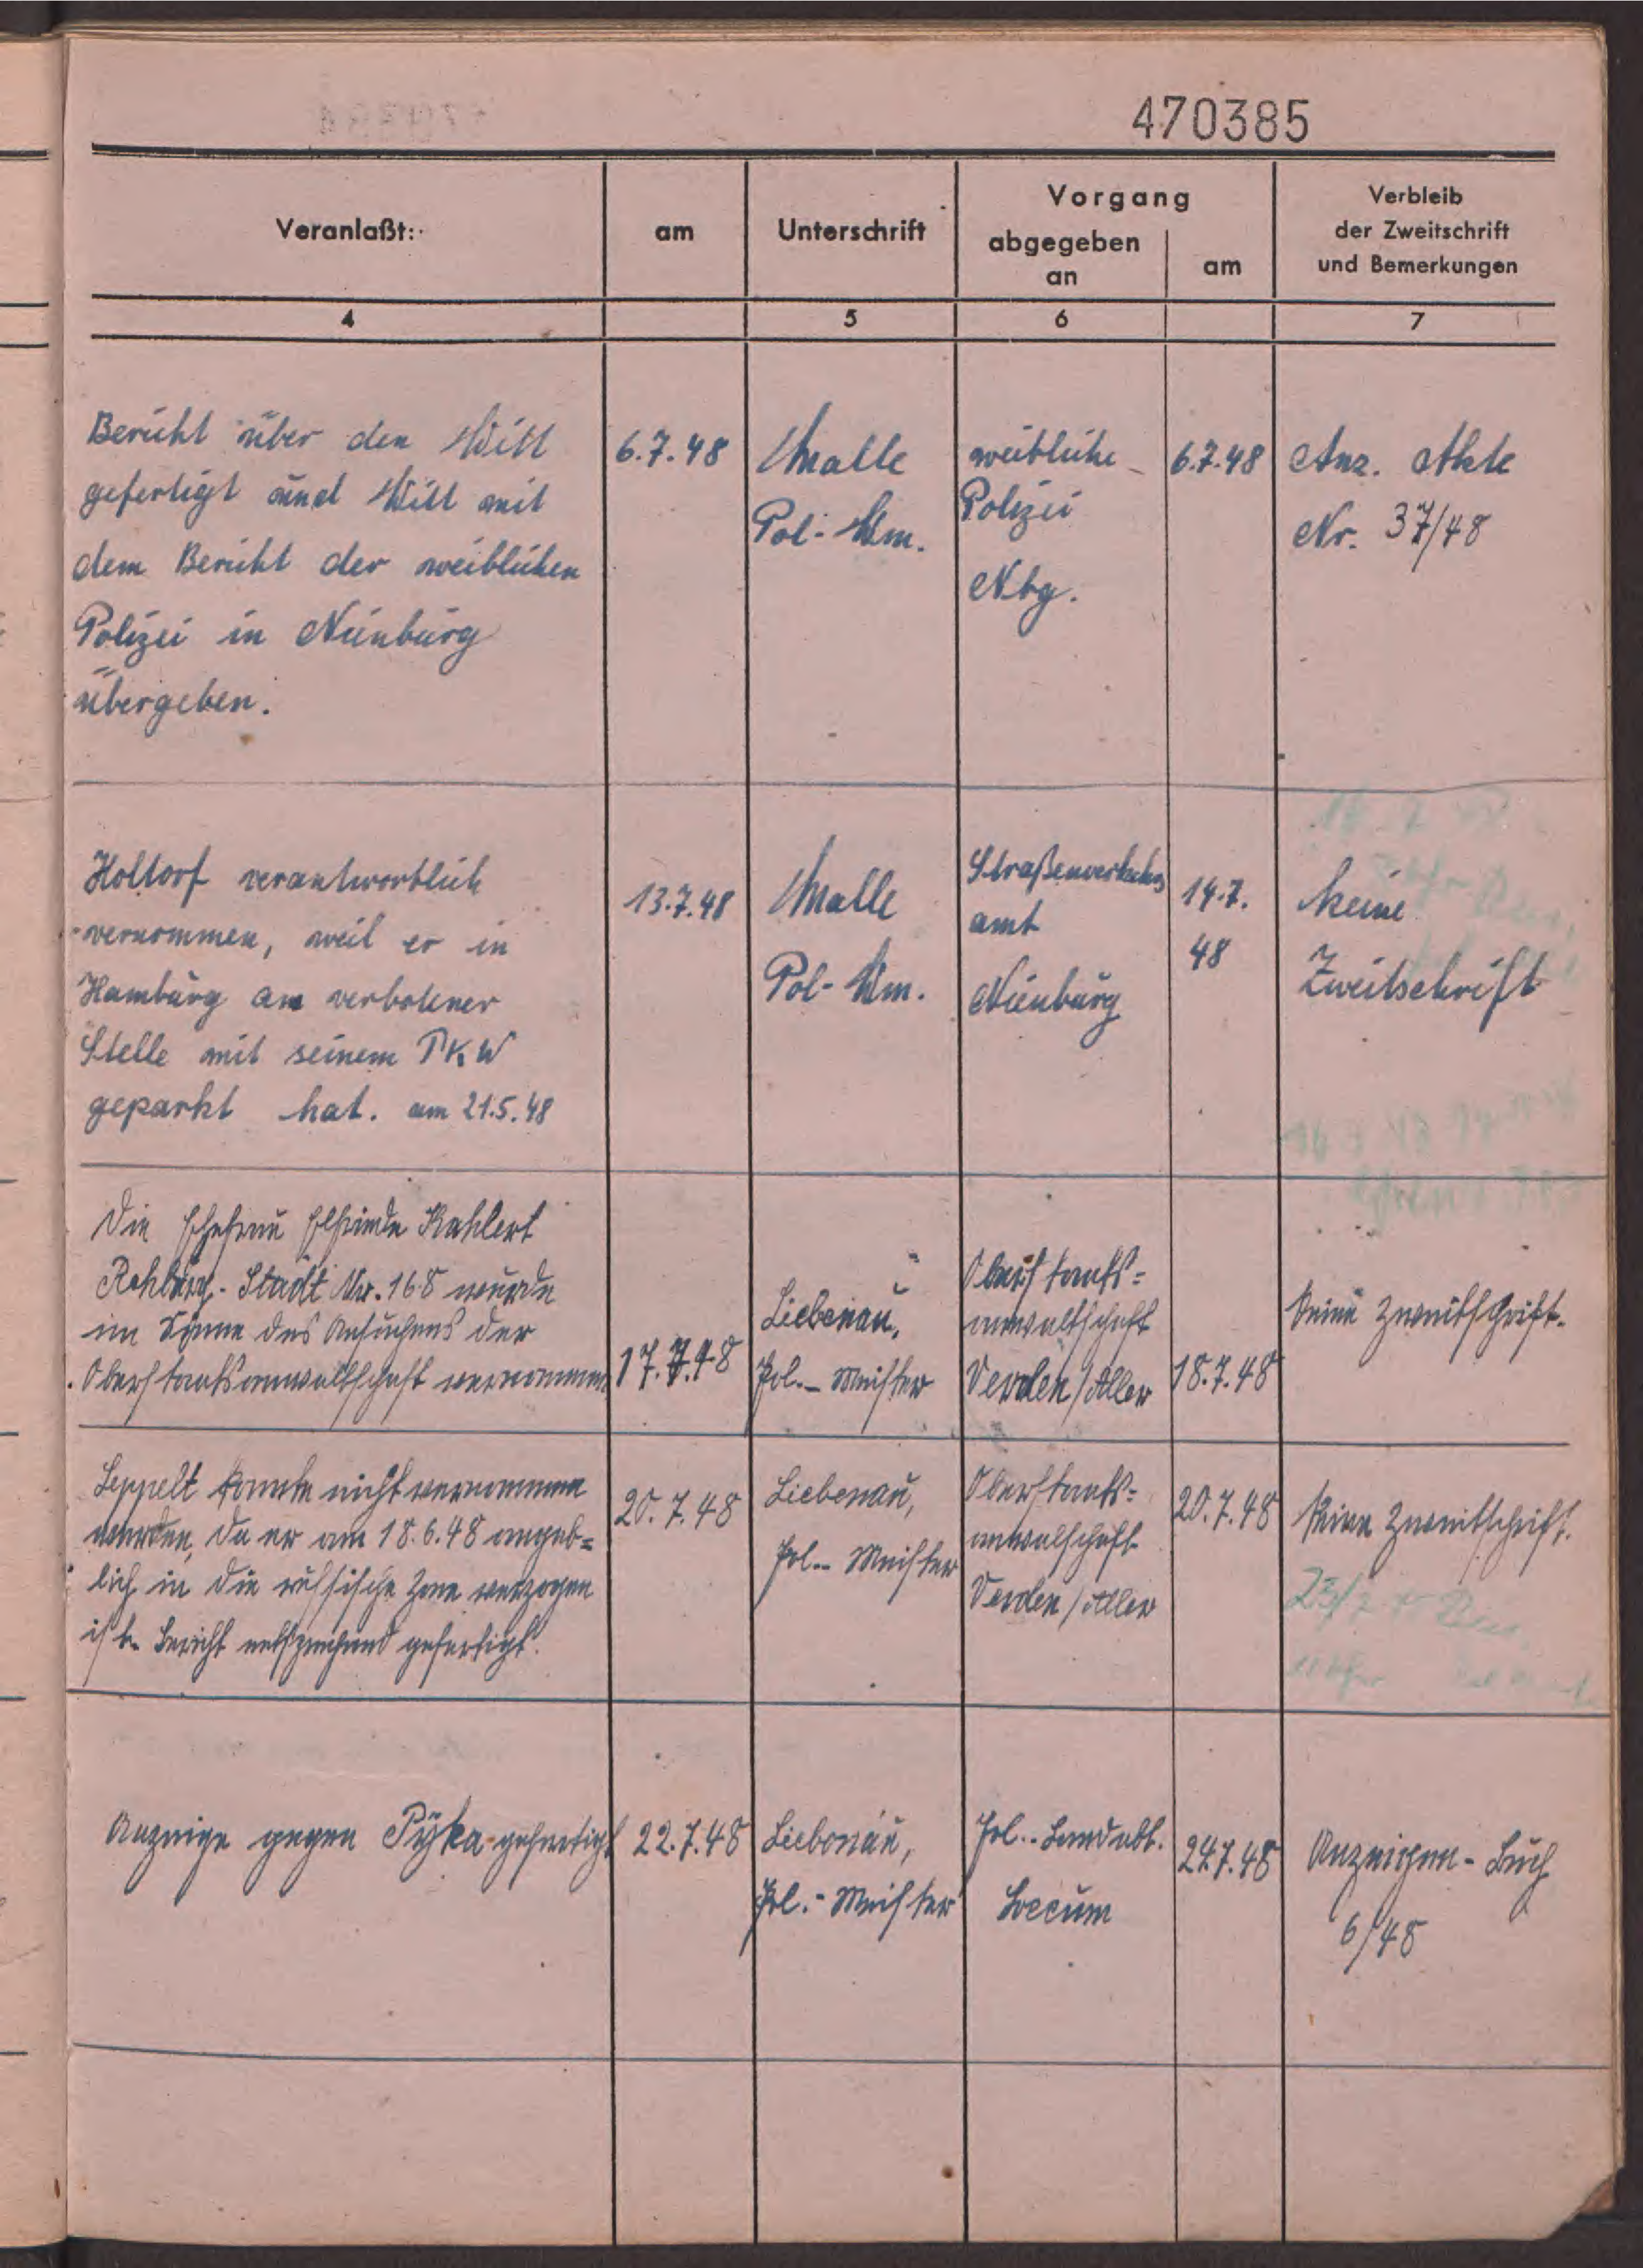 470385
Veranlaßt:
am
Unterschrift
Vorgang
abgegeben
an
am
Verbleib
der Zweitschrift
und Bemerkungen
4
5
6
7
Bericht über den Witt
gefertigt und Witt mit
dem Bericht der weiblichen
Polizei in Nienburg
übergeben.
6.7.48
Malle
Pol-Wm.
weibliche
Polizei
Nbg.
6.7.48
Anz. Akte
Nr. 37/48
Holtorf verantwortlich
vernommen, weil er in
Hamburg an verbotener
Stelle mit seinem PKW
geparkt hat. am 21.5.48
13.7.48
Malle
Pol-Wm.
Straßenverkehrs
amt
Nienburg
14.7.
48
keine
Zweitschrift
Die Ehefrau Elfriede Kahlert
Rehburg-Stadt Nr. 168 wurde
im Sinne des Ansuchens der
Oberstaatsanwaltschaft vernommen
17.7.48
Liebenau,
Pol.-Meister
Oberstaats=
anwaltschaft
Verden/Aller
18.7.48
Keine Zweitschrift.
Leppelt konnte nicht vernommen
werden, da er am 18.6.48 angeb=
lich in die russische Zone verzogen
ist. Bericht entsprechend gefertigt.
20.7.48
Liebenau,
Pol.-Meister
Oberstaats=
anwalschaft
Verden/Aller
20.7.48
Keine Zweitschrift.
Anzeige gegen Pyka gefertigt
22.7.48
Liebenau,
Pol.-Meister
Pol.-Landabt.
Loccum
24.7.48
Anzeigen-Buch
6/48